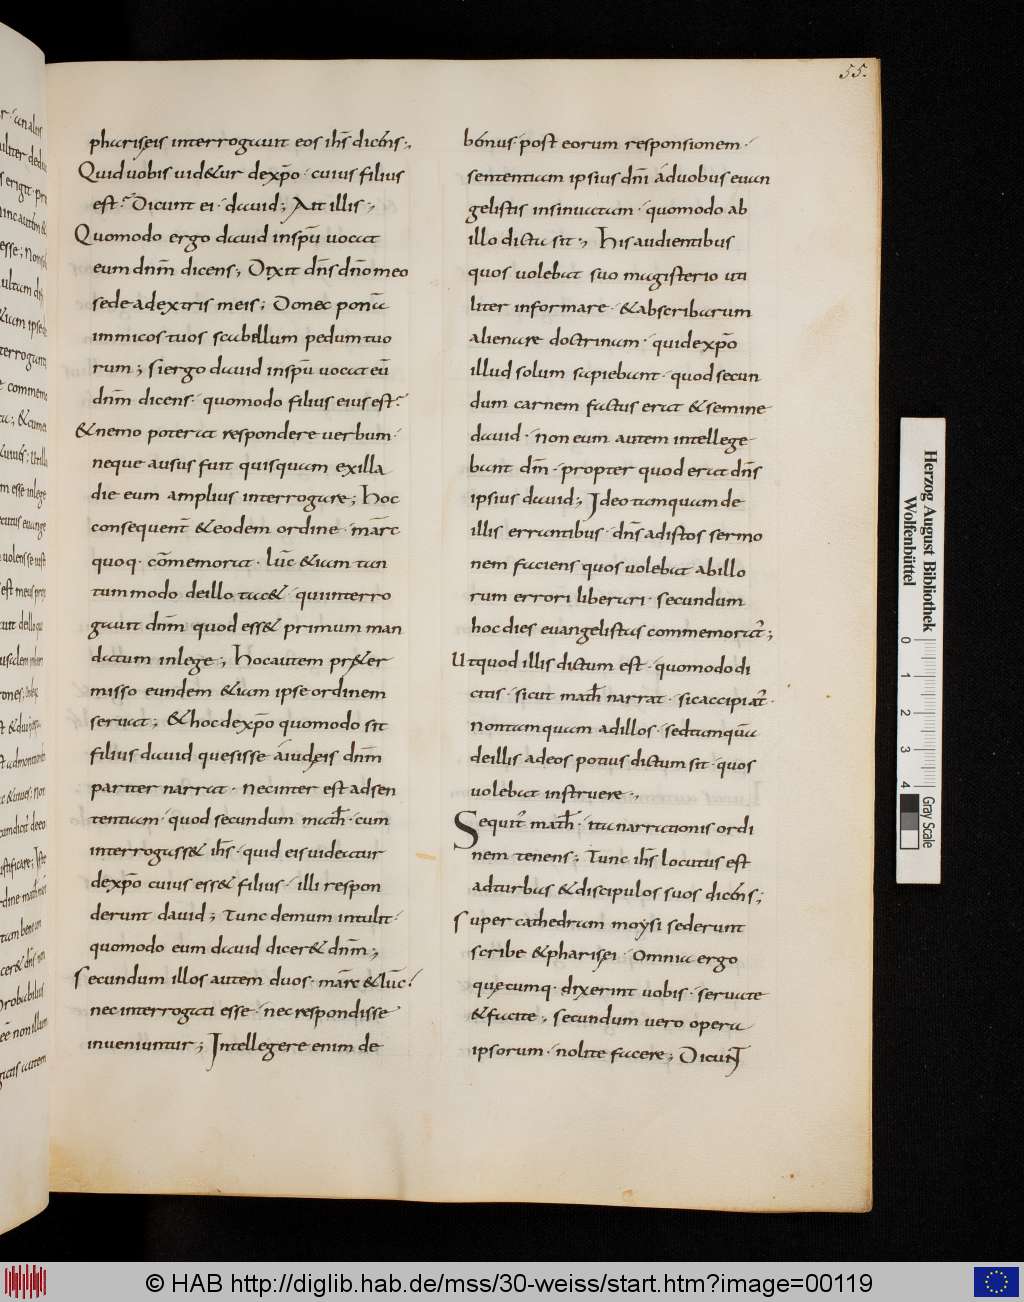 55.
pharisęis interrogauit eos ih̅s dicens;,
Quid uobis uid&ur dexp̅o · cuius filius
est? Dicunt ei · dauid; Ait illis;,
Quomodo ergo dauid insp̅u uocat
eum dn̅m dicens; Dixit dn̅s dn̅o meo
sede adextris meis; Donec ponā
inimicos tuos scabellum pedum tuo
rum; siergo dauid insp̅u uocat eū
dn̅m dicens · quomodo filius eius est?
& nemo poterat respondere uerbum ·
neque ausus fuit quisquam exilla
die eum amplius interrogare; Hoc
consequent̅ & eodem ordine · mar̅c
quoq· cōmemorat · luc̅ &iam tan
tummodo deillo tac& · quiinterro
gauit dn̅m quod ess& primum man
datum inlege; Hocautem pr&er
misso eundem &iam ipse ordinem
seruat; & hoc dexp̅o quomodo sit
filius dauid quesisse aiudęis dn̅m
pariter narrat · necinter est adsen
tentiam · quod secundum math̅ · cum
interrogass& ih̅s · quid eis uideatur
dexp̅o cuius ess& filius · illi respon
derunt dauid; Tunc demum intulit ·
quomodo eum dauid dicer& dn̅m;,
Secundum illos autem duos · mar̅c & luc̅ ·
nec interrogati esse · nec respondisse
inueniuntur; Intellegere enim de
bemus · post eorum responsionem ·
sententiam ipsius dn̅i aduobus euan
gelistis insinuatam · quomodo ab
illo dicta sit;, His audientibus
quos uolebat suo magisterio uti
liter informare · & abscribarum
alienare doctrinam · quidexp̅o
illud solum sapiebant · quod secun
dum carnem factus erat & semine
dauid · non eum autem intellege
bant dm̅ · propter quod erat dn̅s
ipsius dauid;, Ideo tamquam de
illis errantibus · dn̅s adistos sermo
nem faciens quos uolebat abillo
rum errori liberari · secundum
hoc dies euangelistas commemorat̅;
Ut quod illis dictum est · quomodo di
citis · sicut math̅ narrat · sic accipiat̅ ·
non tamquam adillos · sed tamquā
deillis adeos potius dictum sit · quos
uolebat instruere;,
Sequit̅ math̅ · ita narrationis ordi
nem tenens; Tunc ih̅s locutus est
adturbas & discipulos suos dicens;
Super cathedram moysi sederunt
scribe & pharisęi · Omnia ergo
quęcumq· dixerint uobis · seruate
& facite; secundum uero opera
ipsorum · nolite facere; Dicunt
Herzog August Bibliothek
Wolfenbüttel
0 1 2 3 4
Gray Scale
© HAB http://diglib.hab.de/mss/30-weiss/start.htm?image=00119